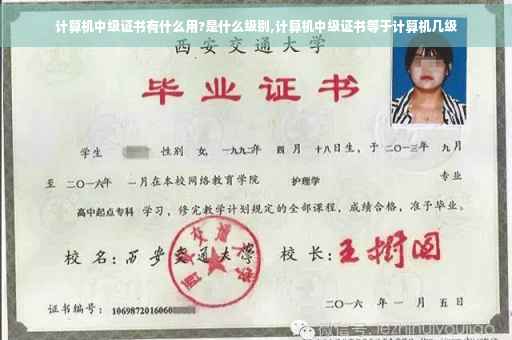 计算机中级证书有什么用?是什么级别,计算机中级证书等于计算机几级
西安交通大学
毕业证书
学生 性别 女,一九九二年 四 月 十八日生,于二〇一三年 九月
至 二〇一六年 一月在本校网络教育学院 护理学 专业
高中起点专科 学习,修完教学计划规定的全部课程,成绩合格,准予毕业。
校 名:西安交通大学 校 长:王树国
西安交通大学
证书编号:1069872016060
二〇一六 年 一 月 五 日
微信号: jezhihuiyoujiao